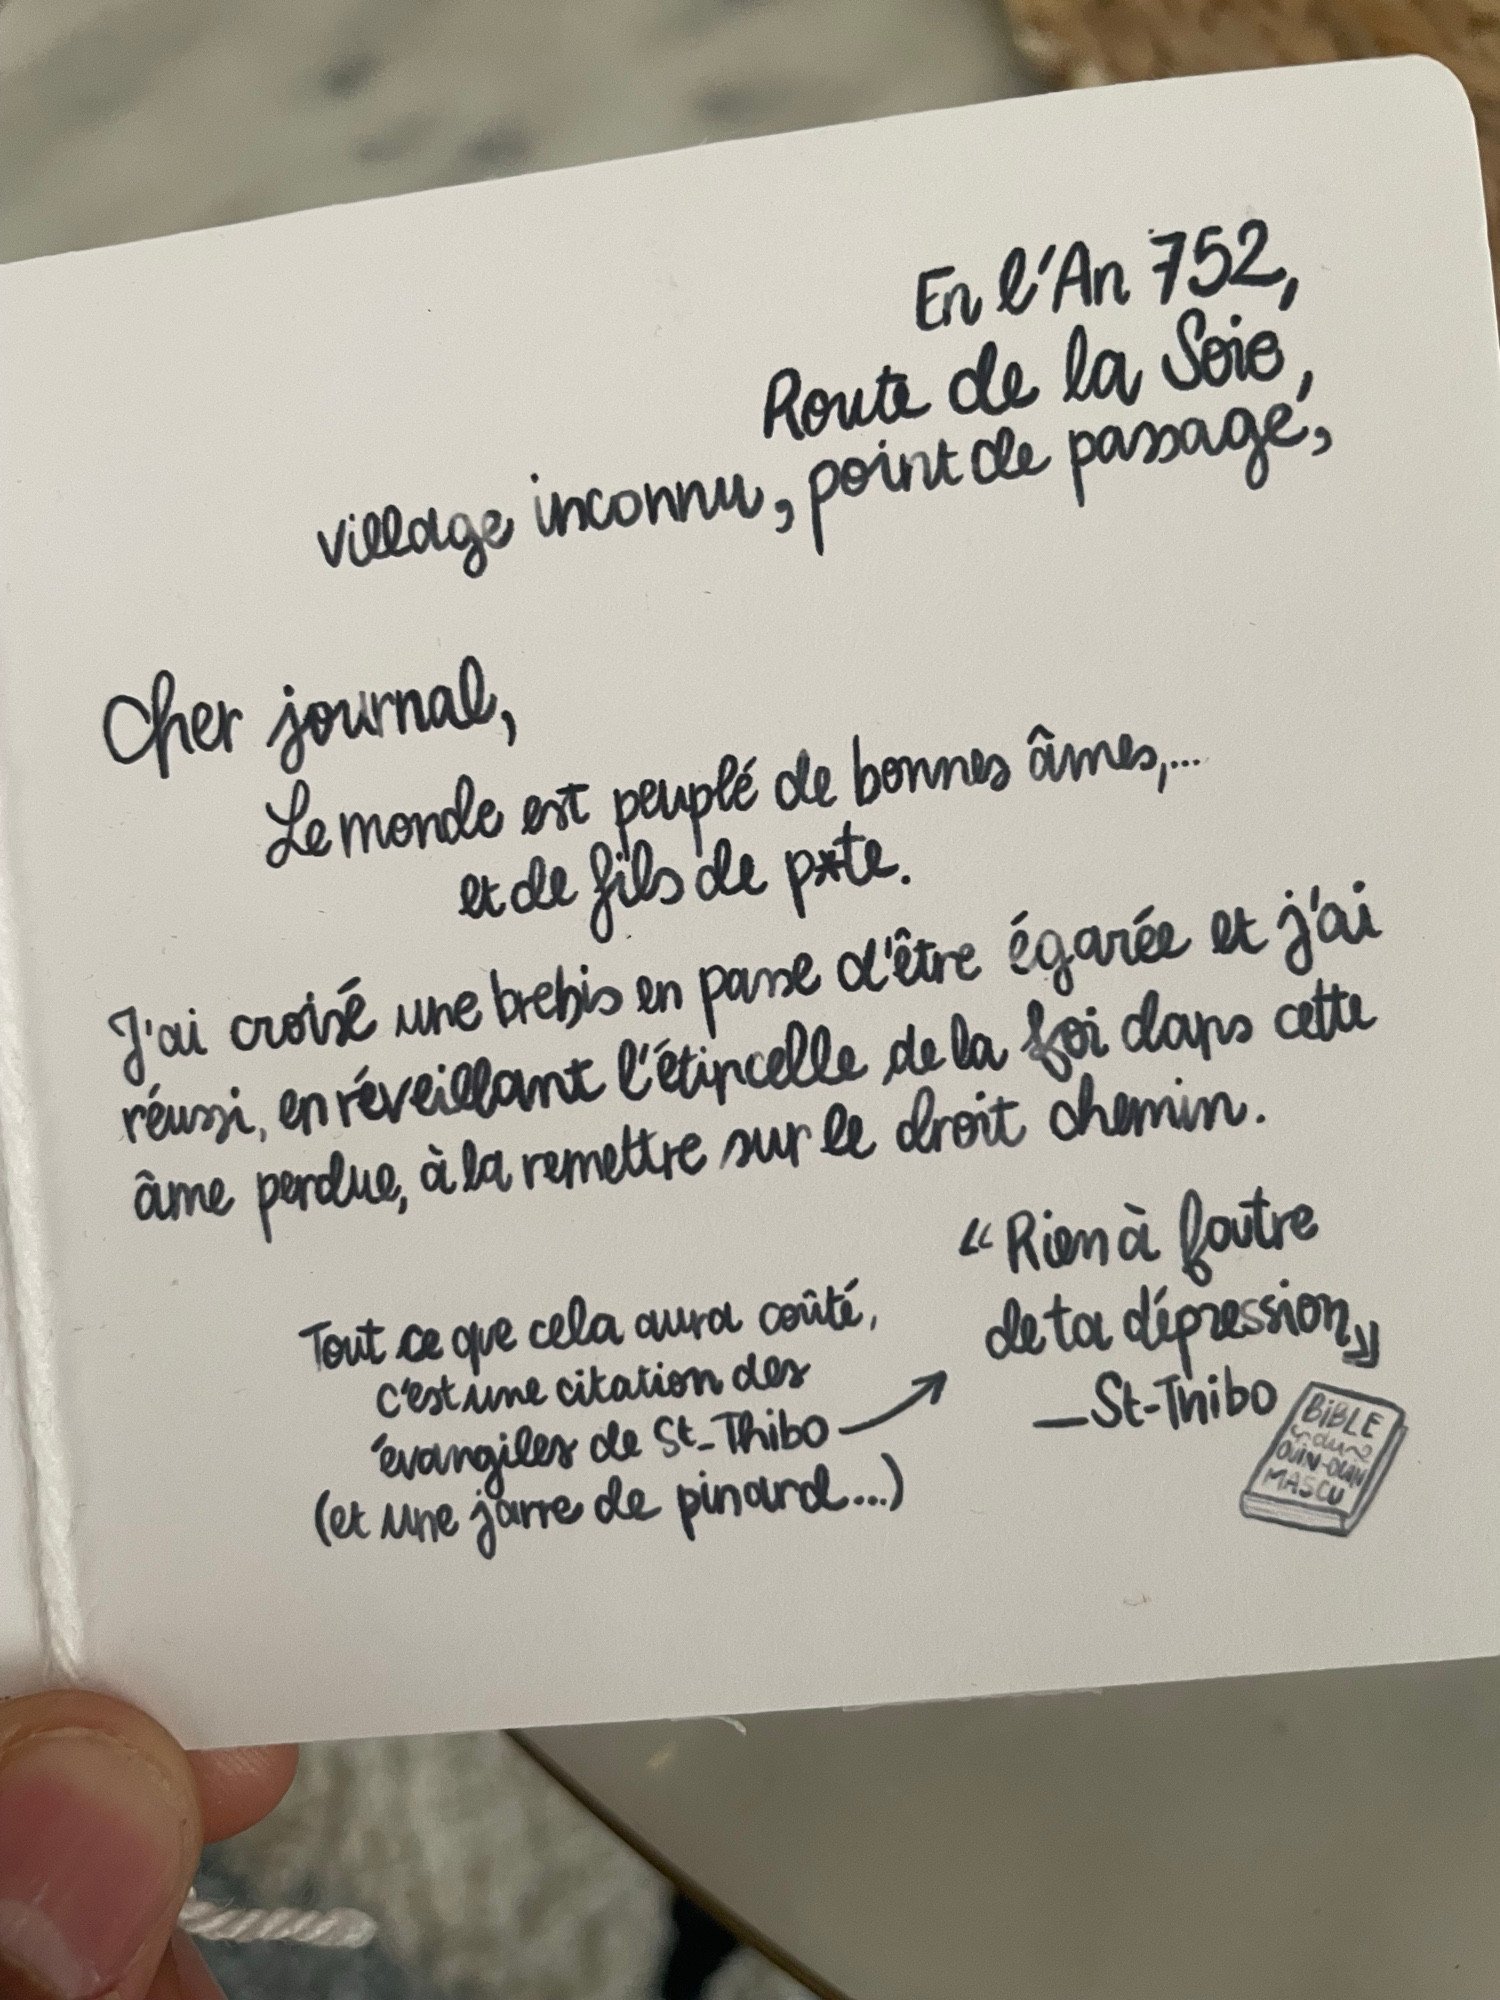 En l'An 752,
Route de la Soie,
village inconnu, point de passage,
Cher journal,
Le monde est peuplé de bonnes âmes,...
et de fils de p*te.
J'ai croisé une brebis en passe d'être égarée et j'ai
réussi, en réveillant l'étincelle de la foi dans cette
âme perdue, à la remettre sur le droit chemin.
Tout ce que cela aura coûté,
c'est une citation des
évangiles de St-Thibo
(et une jarre de pinard...)
« Rien à foutre
de ta dépression »
— St-Thibo
BIBLE
du
OUIN-OUIN
MASCU